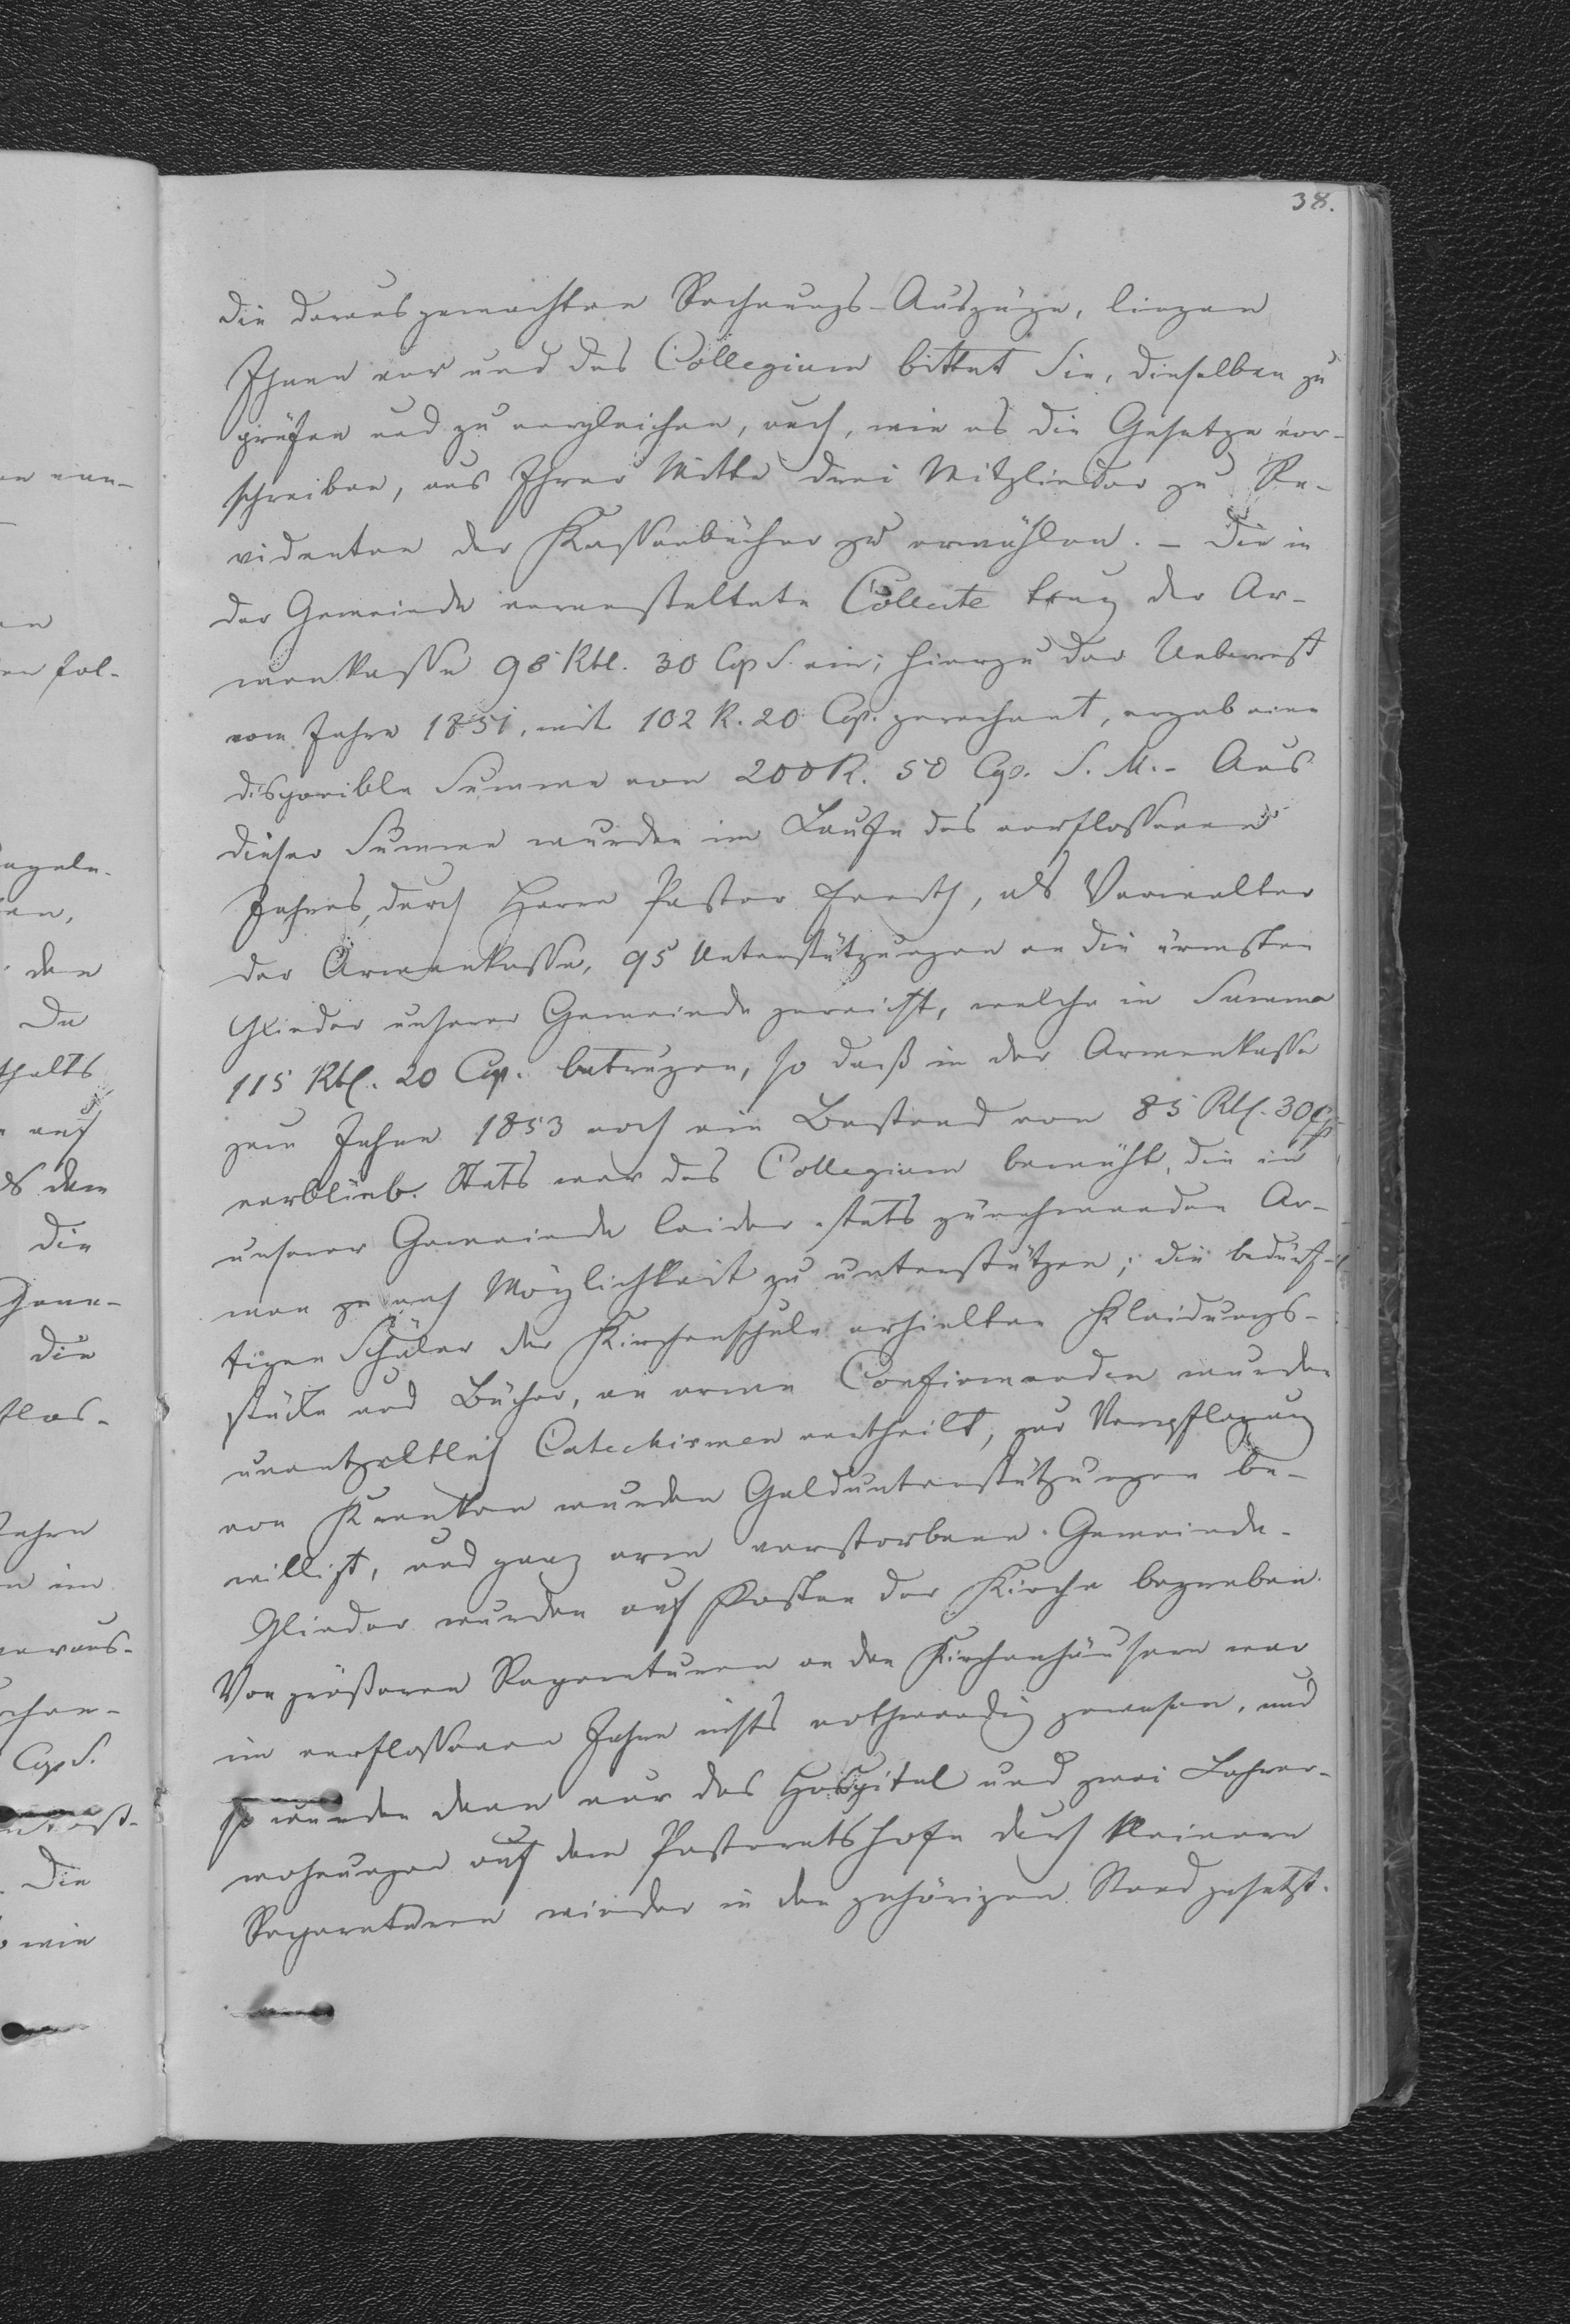 38.
die daraus gemachten Rechnungs-Auszüge, liegen
Ihnen vor und das Collegium bittet Sie, dieselben zu
prüfen und zu vergleichen, auch, wie es die Gesetze vor-
schreiben, aus Ihrer Mitte drei Mitglieder zu Re-
videnten der Kassenbücher zu erwählen. – Die in
der Gemeinde veranstaltete Collecte trug der Ar-
menkasse 98 Rbl. 30 Cop S. ein; hierzu der Ueberrest
vom Jahre 1851, mit 102 R. 20 Cop. gerechnet, ergab eine
disponible Summe von 200 R. 50 Cop. S. M. – Aus
dieser Summe wurden im Laufe des verflossenen
Jahres, durch Herrn Pastor, als Verwalter
der Armenkasse, 95 Unterstützungen an die ärmsten
Glieder unserer Gemeinde gereicht, welche in Summa
115 Rbl. 20 Cop. betrugen, so daß in der Armenkasse
zum Jahre 1853 noch ein Bestand von 85 Rbl. 30 Cp
verblieb. Stets war das Collegium bemüht, die in
unserer Gemeinde leider stets zunehmenden Ar-
men zu nach Möglichkeit zu unterstützen; die bedürf-
tigen Schüler der Kirchenschule erhielten Kleidungs-
stücke und Bücher, an arme Confirmanden wurden
unentgeltlich Catechismen vertheilt, zur Verpflegung
von Kranken wurden Geldunterstützungen be-
willigt, und ganz arm verstorbene Gemeinde-
Glieder wurden auf Kosten der Kirche begraben.
Von größeren Reparaturen an den Kirchenhäusern war
im verflossenen Jahre nichts nothwendig gewesen, und
so wurden denn nur das Hospital und zwei Lehrer-
wohnungen auf dem Pastoratshofe durch kleinere
Reparaturen wieder in den gehörigen Stand gesetzt.